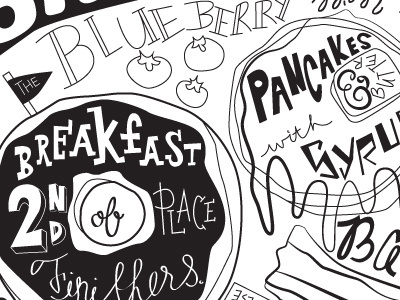 BLUEBERRY
THE
BREAKFAST
2ND of PLACE
Finishers.
PANCAKES
&
with
SYRUP